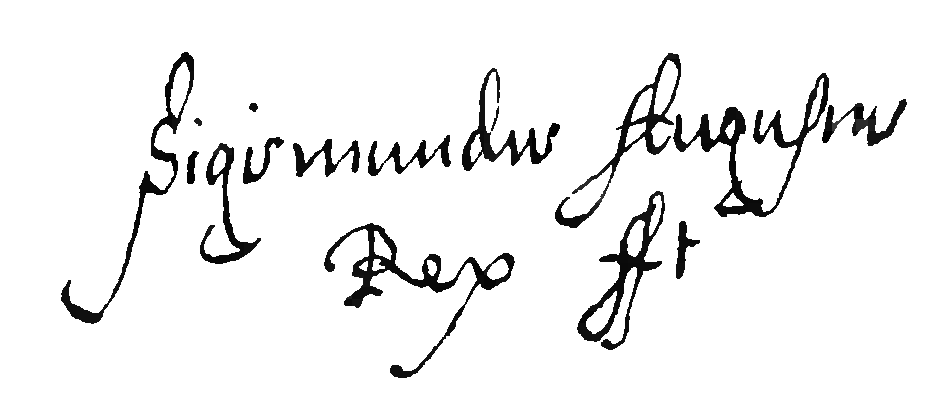 Sigismundus Augustus
Rex